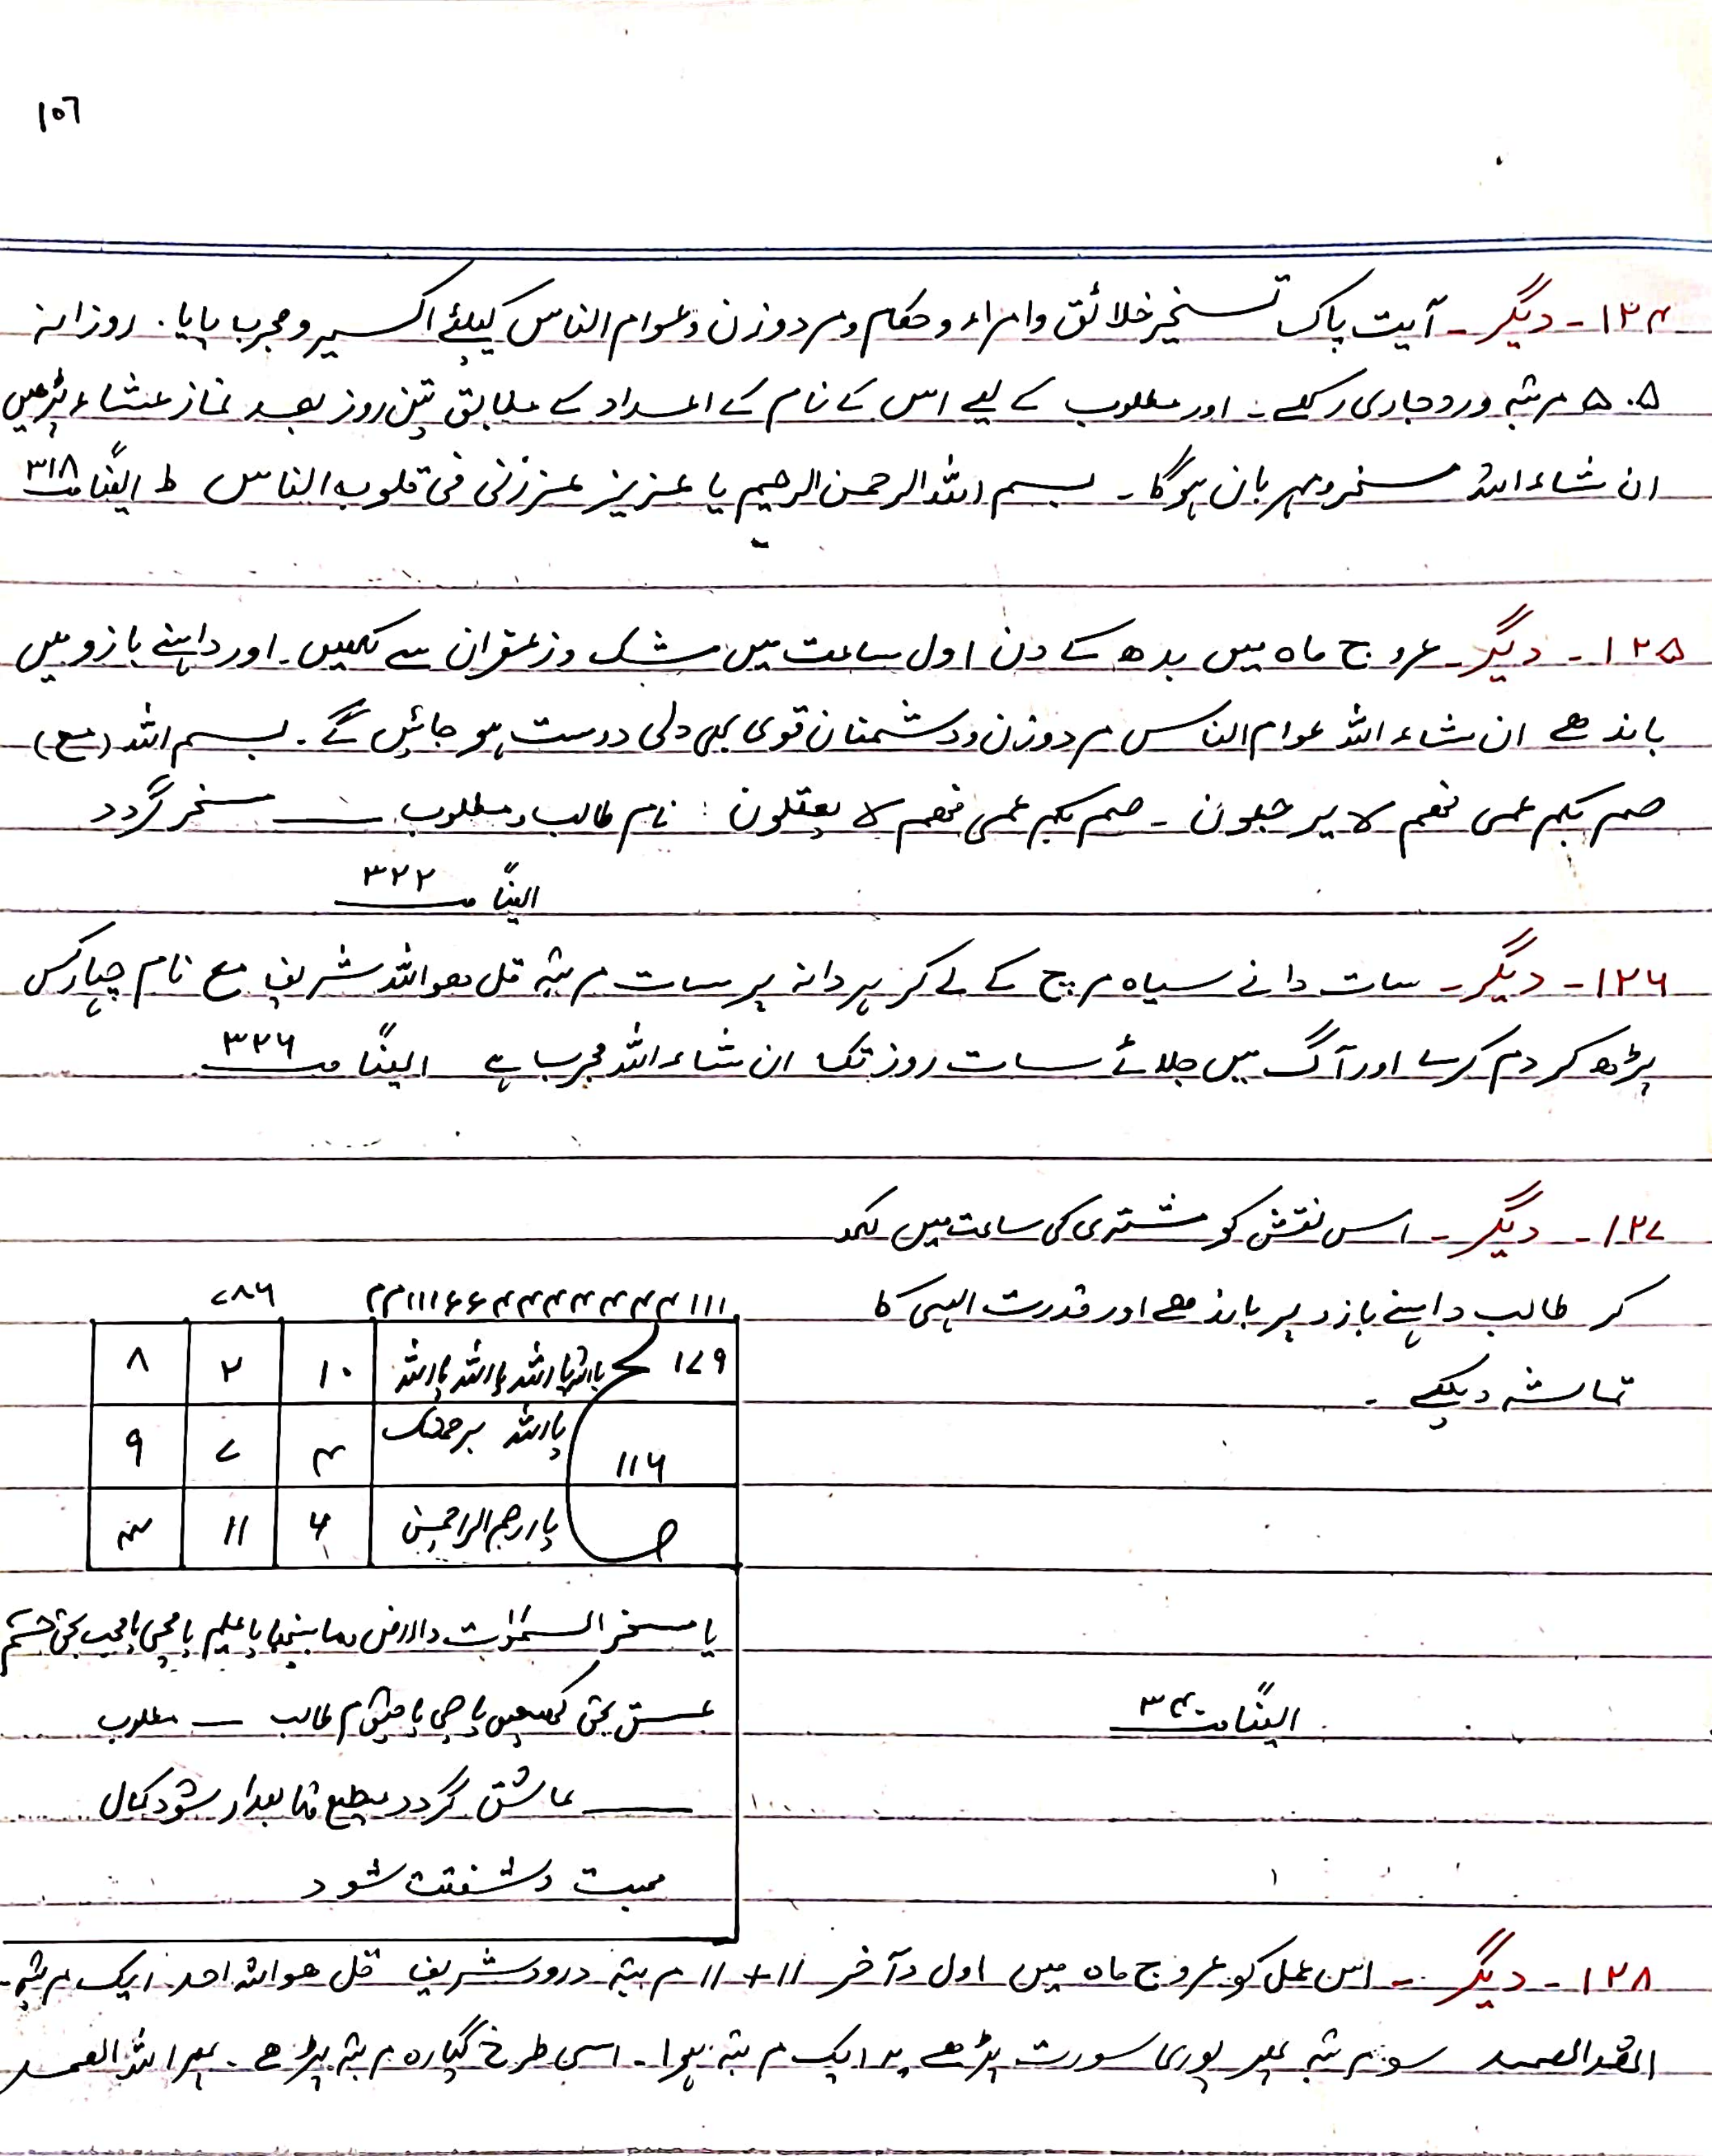 ۱۵۶
۱۲۴۔ دیگر۔ آیت پاک تسخیر خلائق و امراء و حکام و مرد و زن و عوام الناس کیلئے اکسیر و مجرب پایا۔ روزانہ
۵۰۵ مرتبہ ورد جاری رکھے۔ اور مطلوب کے لیے اس کے نام کے اعداد کے مطابق تین روز بعد نماز عشاء پڑھیں
ان شاء اللہ مسخر و مہربان ہوگا۔ بسم اللہ الرحمن الرحیم یا عزیز عززنی فی قلوب الناس ط ایضًا صـ ۳۱۸
۱۲۵۔ دیگر۔ عروج ماہ میں بدھ کے دن اول ساعت میں مشک و زعفران سے لکھیں۔ اور داہنے بازو میں
باندھے ان شاء اللہ عوام الناس مرد و زن و دشمنان قوی بھی دلی دوست ہو جائیں گے۔ بسم اللہ (مع)
صم بکم عمی فھم لا یرجعون ۔ صم بکم عمی فھم لا یعقلون : نام طالب و مطلوب ــــ مسخر گردد
ایضًا صـ ۳۲۲
۱۲۶۔ دیگر۔ سات دانے سیاہ مرچ کے لے کر ہر دانہ پر سات مرتبہ قل ھو اللہ شریف مع نام چہار کس
پڑھ کر دم کرے اور آگ میں جلائے سات روز تک ان شاء اللہ مجرب ہے ایضًا صـ ۳۲۶
۱۲۷۔ دیگر۔ اس نقش کو مشتری کی ساعت میں لکھ
کر طالب داہنے بازو پر باندھے اور قدرت الہی کا
تماشہ دیکھے۔
۷۸۶
۸ ۲ ۱۰ یا اللہ یا اللہ یا اللہ یا اللہ ۱۷۹
۹ ۷ ۴ یا اللہ برحمتک ۱۱۶
۱۱ ۶ یا ارحم الراحمین
یا مسخر السمٰوات والارض وما بینھما یا علیم یا محی یا محب بحق حٓم
عسق بحق کھیعص یا حی یا قیوم طالب ــ مطلوب
ــــ عاشق گردد مطیع تابعدار شود کمال
محبت و شفقت شود
ایضًا صـ ۳۴۰
۱۲۸۔ دیگر ۔ اس عمل کو عروج ماہ میں اول و آخر ۱۱+۱۱ مرتبہ درود شریف قل ھو اللہ احد ایک مرتبہ۔
اللہ الصمد سو مرتبہ پھر پوری سورت پڑھے یہ ایک مرتبہ ہوا۔ اسی طرح گیارہ مرتبہ پڑھے۔ پھر اللہ الصمد